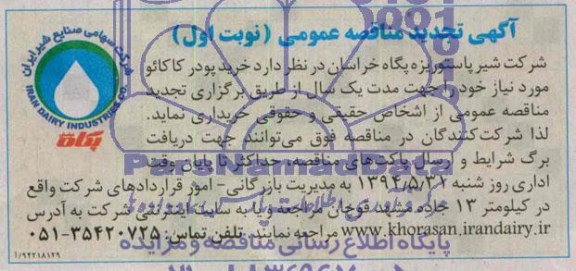 آگهی تجدید مناقصه عمومی (نوبت اول)
شرکت سهامی صنایع شیر ایران
IRAN DAIRY INDUSTRIES CO.
پگاه
شرکت شیر پاستوریزه پگاه خراسان در نظر دارد خرید پودر کاکائو
مورد نیاز خود را جهت مدت یک سال از طریق برگزاری تجدید
مناقصه عمومی از اشخاص حقیقی و حقوقی خریداری نماید.
لذا شرکت‌کنندگان در مناقصه فوق می‌توانند جهت دریافت
برگ شرایط و ارسال پاکت‌های مناقصه، حداکثر تا پایان وقت
اداری روز شنبه ۱۳۹۴/۵/۳۱ به مدیریت بازرگانی- امور قراردادهای شرکت واقع
در کیلومتر ۱۳ جاده مشهد قوچان مراجعه و یا به سایت اینترنتی شرکت به آدرس
www.khorasan.irandairy.ir مراجعه نمایند. تلفن تماس: ۳۵۴۲۰۷۲۵-۰۵۱
۱/۹۴۲۱۸۱۲۹
ParsNamadData
پایگاه اطلاع رسانی مناقصه و مزایده